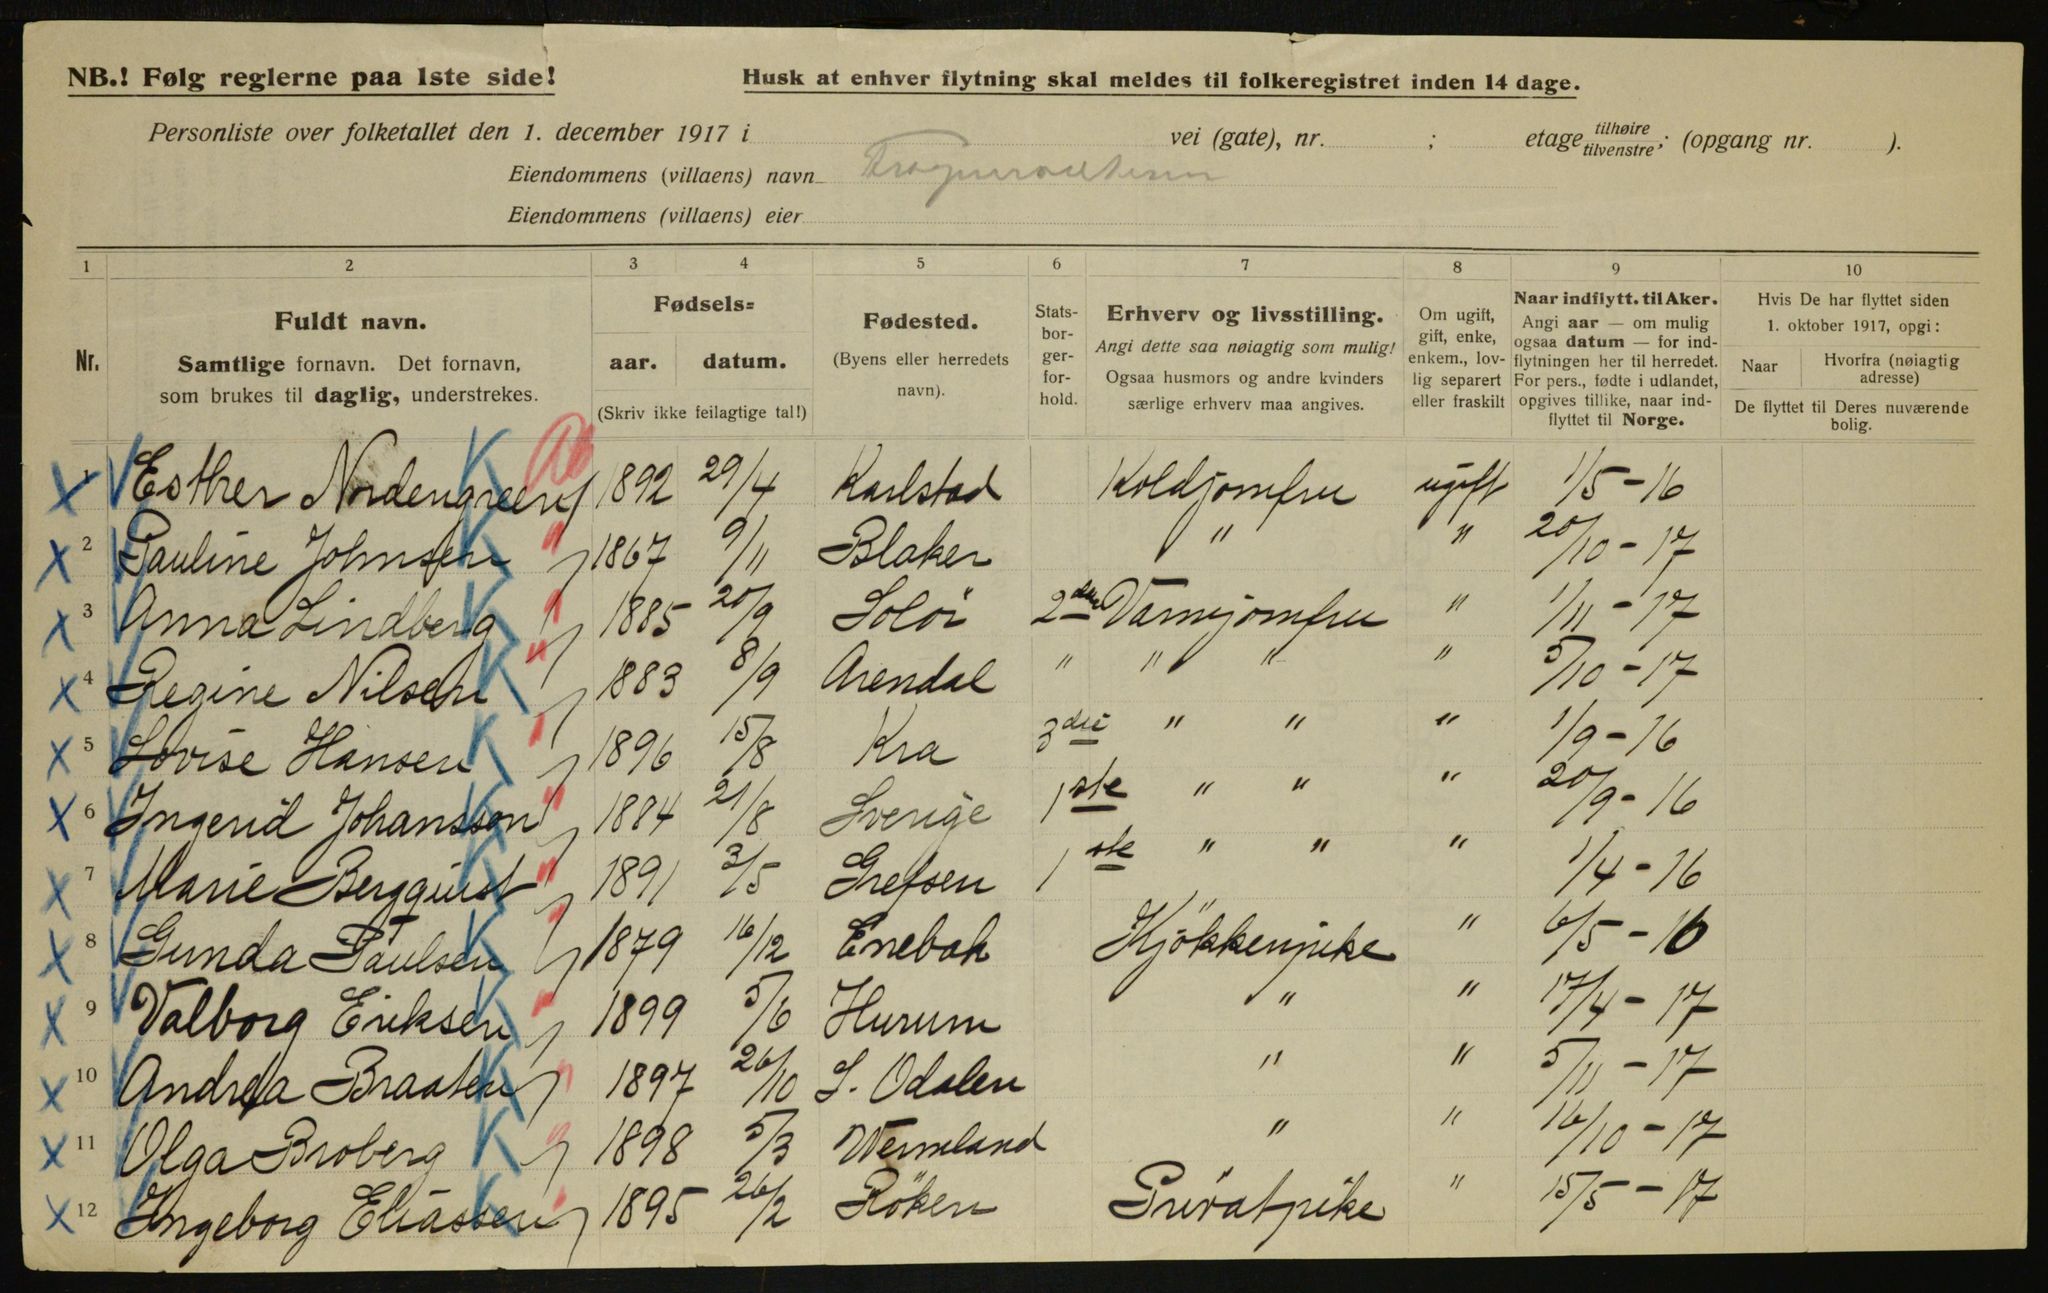 NB.! Følg reglerne paa 1ste side!
Husk at enhver flytning skal meldes til folkeregistret inden 14 dage.
Personliste over folketallet den 1. december 1917 i vei (gate), nr. ; etage tilhøire tilvenstre; (opgang nr. ).
Eiendommens (villaens) navn
Eiendommens (villaens) eier
1 2 3 4 5 6 7 8 9 10
Nr.
Fuldt navn.
Samtlige fornavn. Det fornavn,
som brukes til daglig, understrekes.
Fødsels=
aar. datum.
(Skriv ikke feilagtige tal!)
Fødested.
(Byens eller herredets
navn).
Stats-
bor-
ger-
for-
hold.
Erhverv og livsstilling.
Angi dette saa nøiagtig som mulig!
Ogsaa husmors og andre kvinders
særlige erhverv maa angives.
Om ugift,
gift, enke,
enkem., lov-
lig separert
eller fraskilt
Naar indflytt. til Aker.
Angi aar — om mulig
ogsaa datum — for ind-
flytningen her til herredet.
For pers., fødte i udlandet,
opgives tillike, naar ind-
flyttet til Norge.
Hvis De har flyttet siden
1. oktober 1917, opgi:
Naar
Hvorfra (nøiagtig
adresse)
De flyttet til Deres nuværende
bolig.
X 1 Esther Nordengreen K 1892 29/4 Karlstad Koldjomfru ugift 1/5-16
X 2 Pauline Johnsen K " 1867 9/11 Blaker " " 20/10-17
X 3 Anna Lindberg K " 1885 20/9 Solör 2den Varmjomfru " 1/11-17
X 4 Regine Nilsen K " 1883 8/9 Arendal " " " " 5/10-17
X 5 Lovise Hansen K " 1896 15/8 Kra 3die " " " 1/9-16
X 6 Ingerid Johansson K " 1884 21/8 Sverige 1ste " " " 20/9-16
X 7 Marie Bergquist K " 1891 3/5 Grefsen 1ste " " " 1/4-16
X 8 Gunda Paulsen K " 1879 16/12 Enebak Kjökkenpike " 6/5-16
X 9 Valborg Eriksen K " 1899 5/6 Hurum " " 17/4-17
X 10 Andrea Braaten K " 1897 26/10 S. Odalen " " 5/11-17
X 11 Olga Broberg K " 1898 5/3 Wermland " " 16/10-17
X 12 Ingeborg Eliassen K " 1895 26/2 Röken Privatpike " 15/5-17